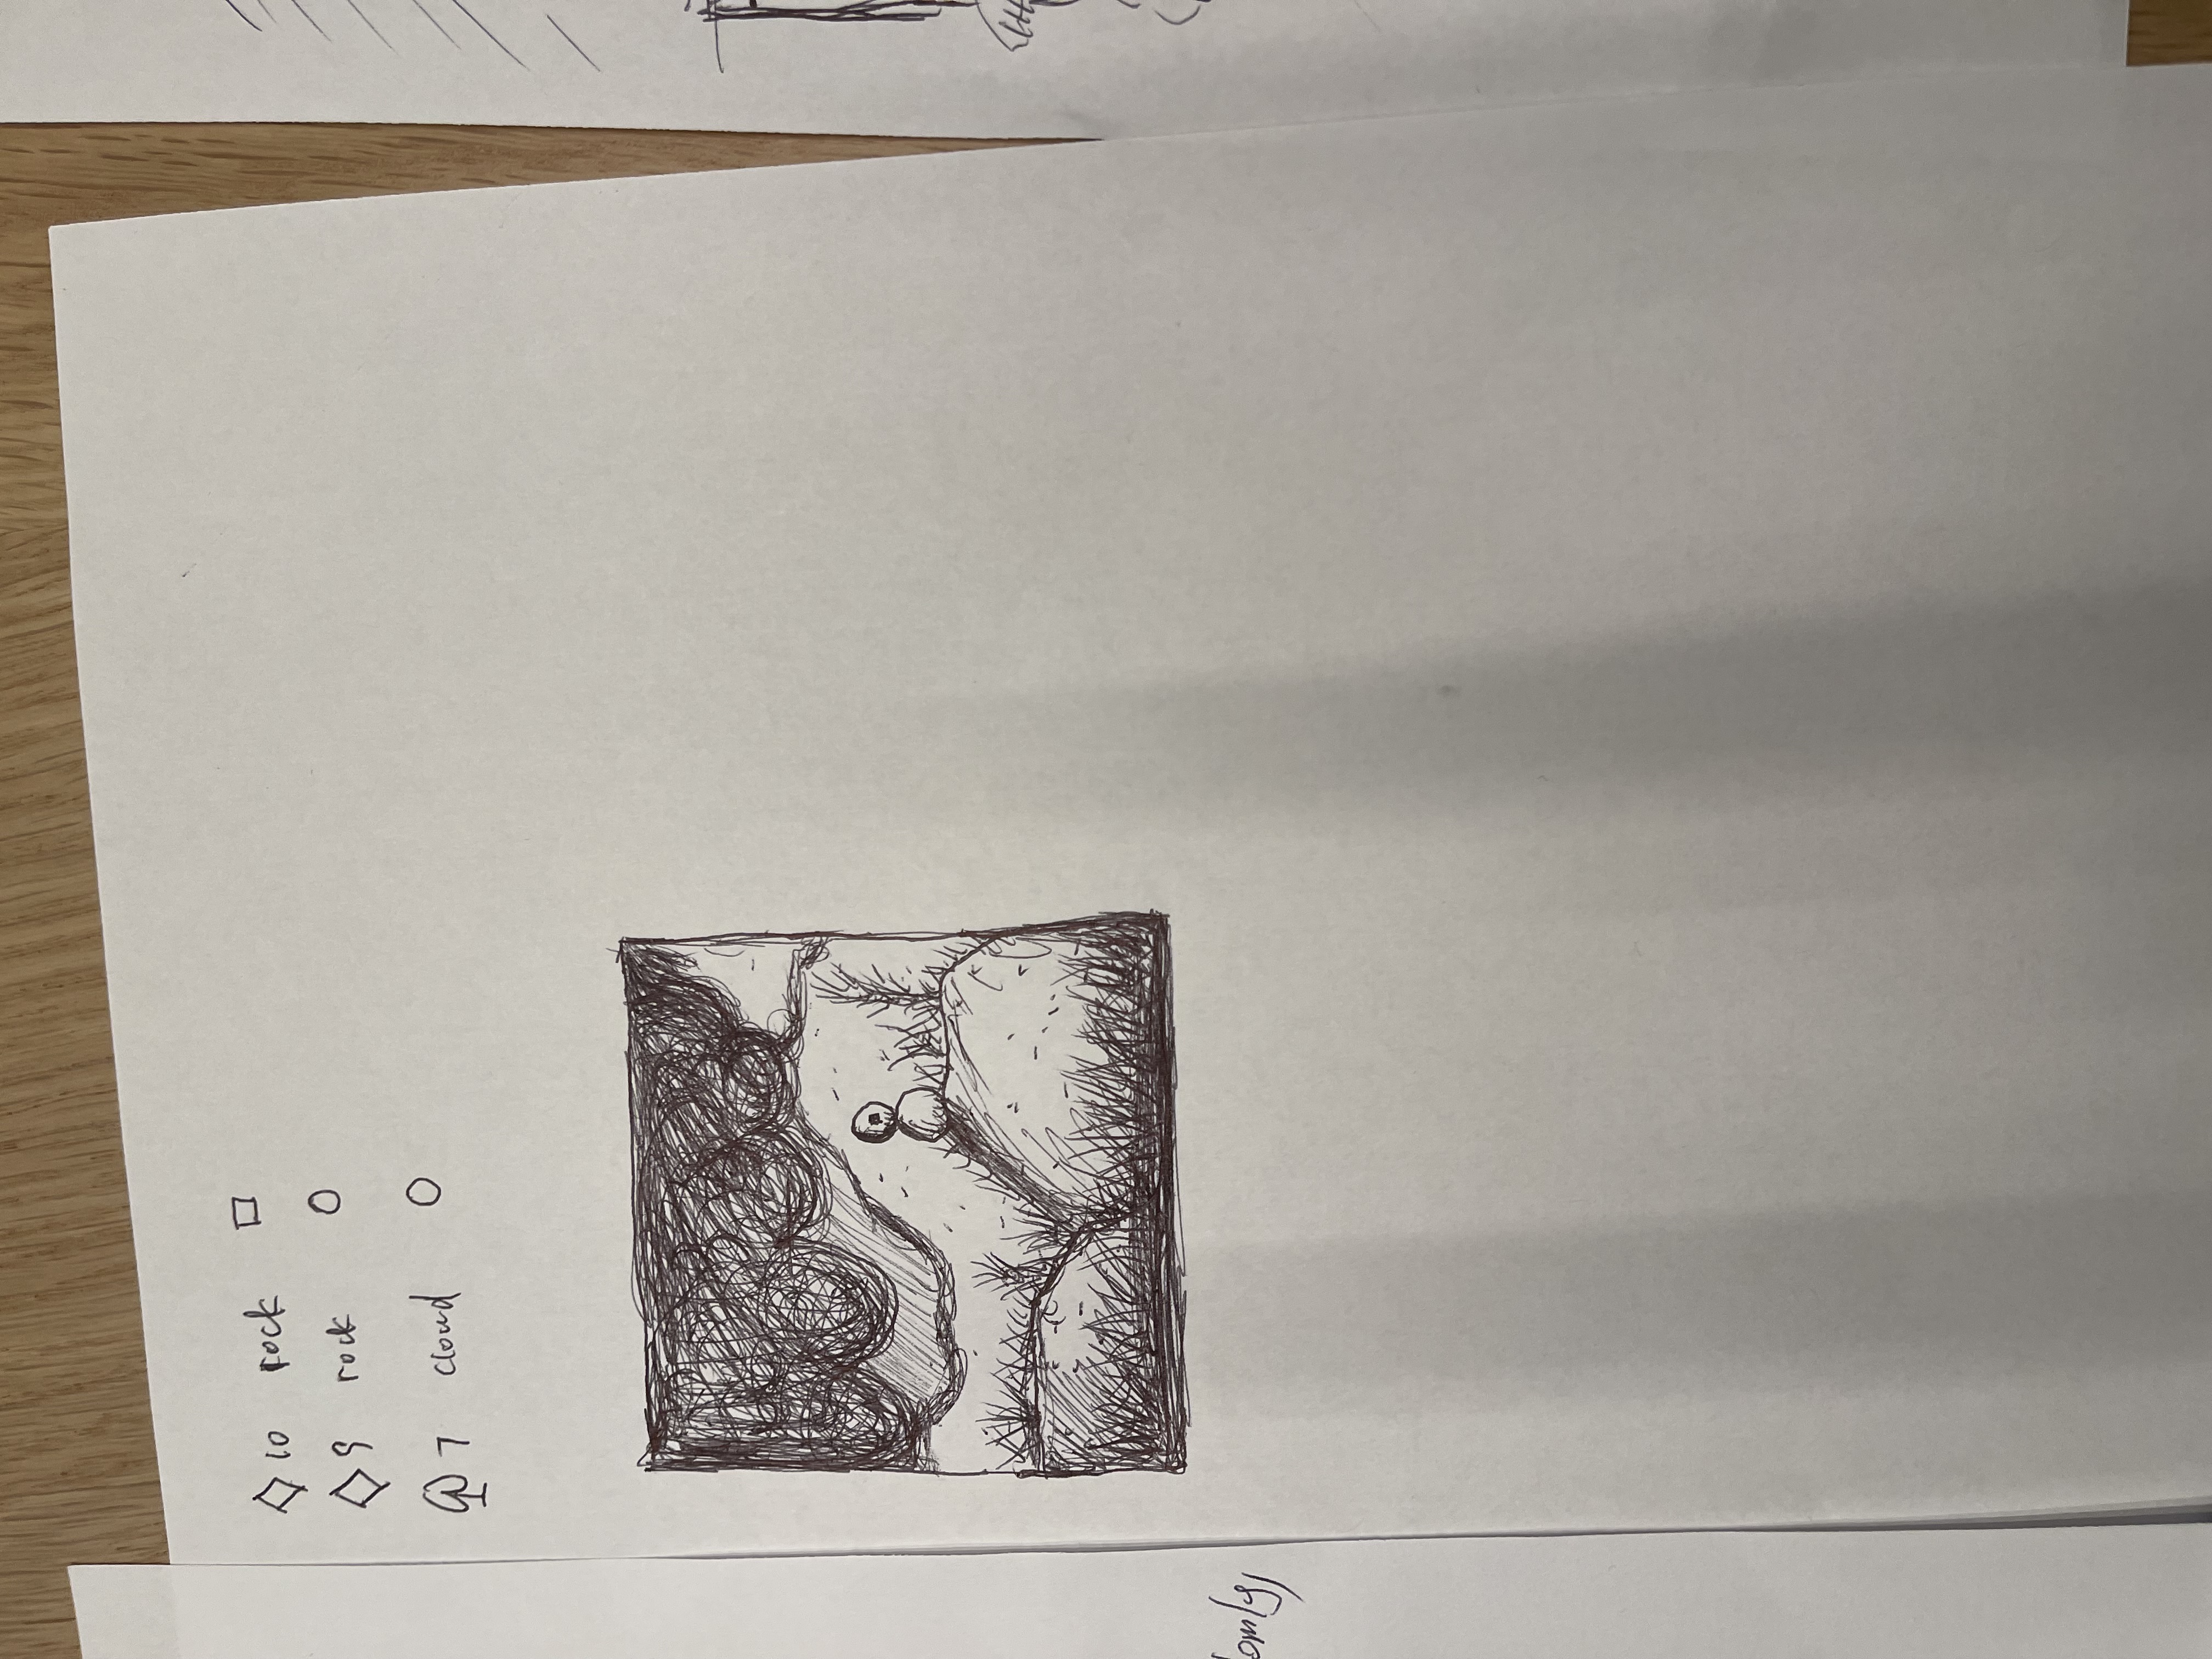 ♢10 rock □
♢9 rock ○
♤7 cloud ○